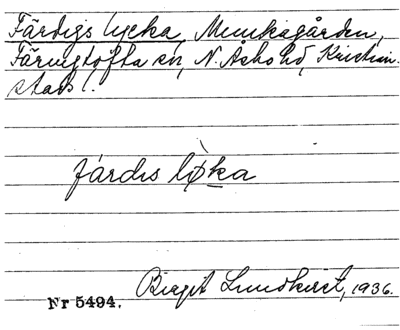 Färdigs lycka, Munkagården,
Färingtofta sn, N. Åsbo hd, Kristian-
stads l.
fárdis lø̀ka
Birgit Lundkvist, 1936.
Nr 5494.